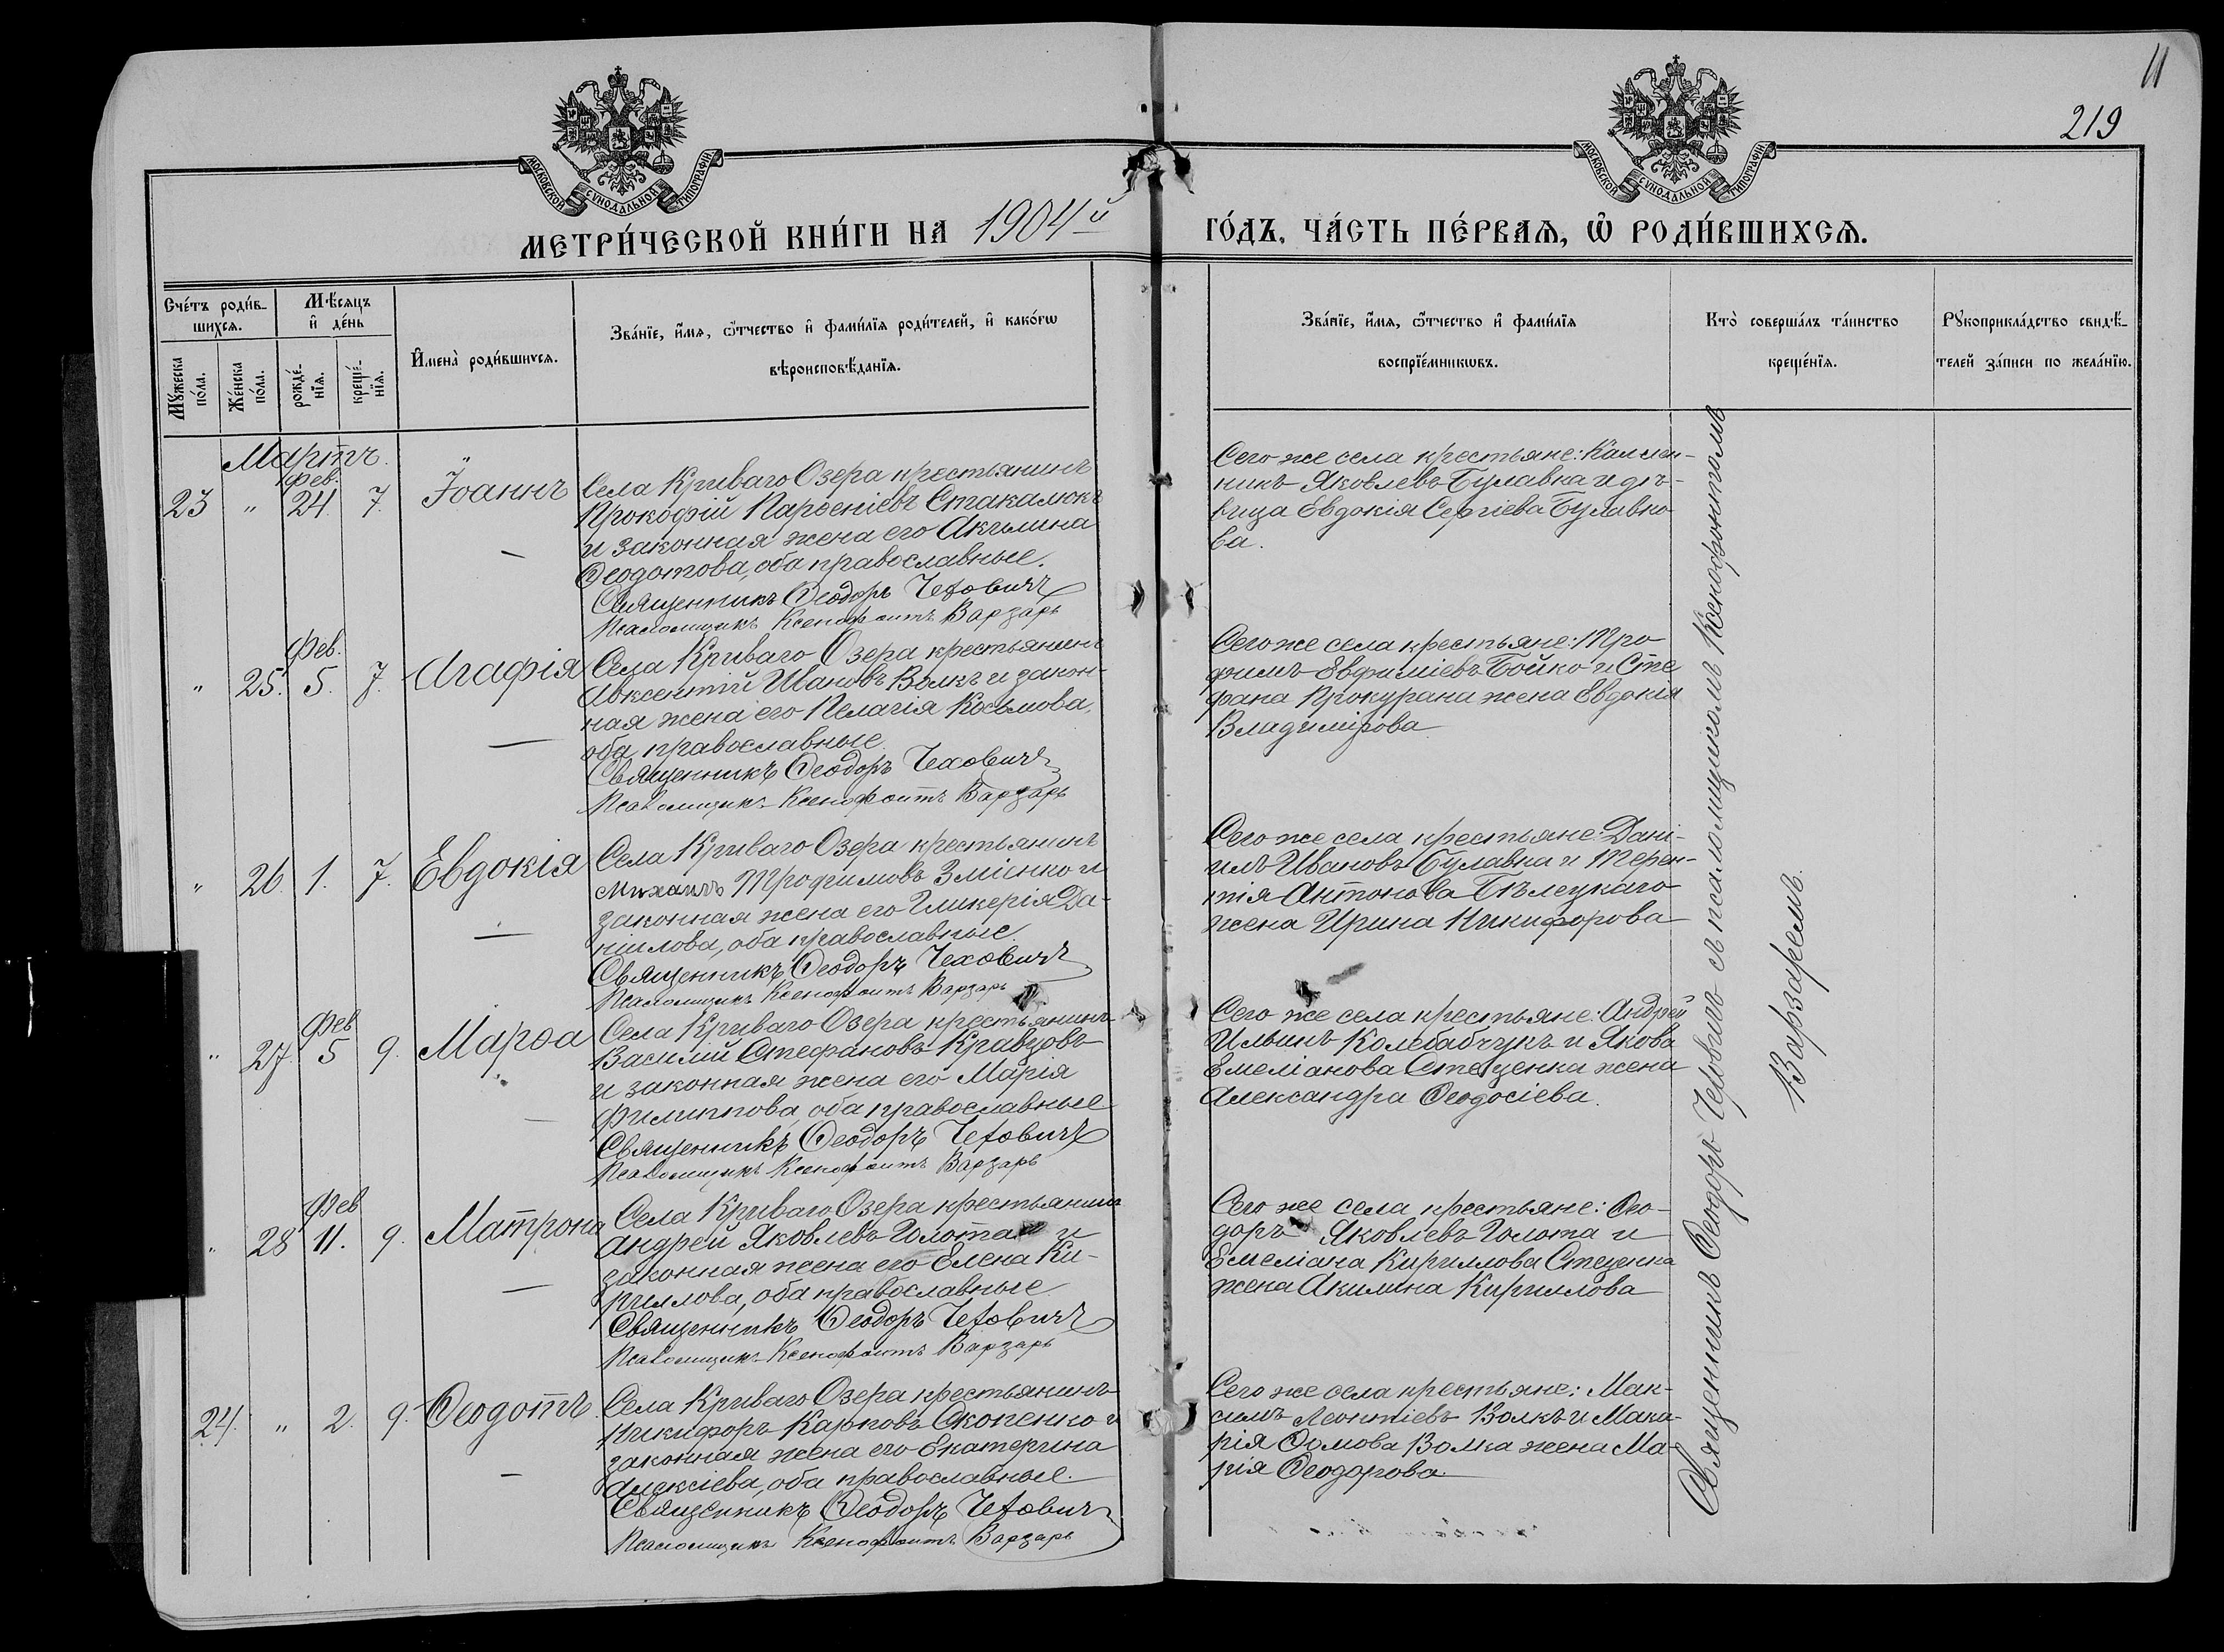 11
219
МОСКОВСКОЙ СѴНОДАЛЬНОЙ ТИПОГРАФІИ
МОСКОВСКОЙ СѴНОДАЛЬНОЙ ТИПОГРАФІИ
МЕТРИ́ЧЕСКОЙ КНИ́ГИ НА 1904й ГО́ДЪ, ЧА́СТЬ ПЕ́РВАѦ, Ѽ РОДИ́ВШИХСѦ.
Сче́тъ роди́в-
шихсѧ.
Мѣ́сѧцъ
и҆ де́нь
Мꙋ́жеска
по́ла.
Же́нска
по́ла.
рожде́-
нїѧ.
креще́-
нїѧ.
И҆мена̀ роди́вшихсѧ.
Зва́нїе, и҆́мѧ, ѻ҆́тчество и҆ фами́лїѧ роди́телей, и҆ како́гѡ
вѣроисповѣ́данїѧ.
Зва́нїе, и҆́мѧ, ѻ҆́тчество и҆ фами́лїѧ
воспрїе́мникѡвъ.
Кто̀ соверша́лъ та́инство
креще́нїѧ.
Рꙋкоприкла́дство свидѣ́-
телей за́писи по жела́нїю.
Мартъ.
Фев.
23 " 24 7. Іоаннъ
Села Криваго Озера крестьянинъ
Прокофій Парѳеніевъ Стакамюкъ
и законная жена его Акилина
Ѳеодотова, оба православные.
Священникъ Ѳеодоръ Чеховичъ
Псаломщикъ Ксенофонтъ Варзарь
Сего же села крестьяне: Каллин-
никъ Яковлевъ Булавка и дѣ-
вица Евдокія Сергіева Булавко-
ва.
Фев.
" 25. 5. 7. Агафія
Села Криваго Озера крестьянинъ
Авксентій Ивановъ Волкъ и закон-
ная жена его Пелагія Косьмова,
оба православные
Священникъ Ѳеодоръ Чеховичъ
Псаломщикъ Ксенофонтъ Варзарь
Сего же села крестьяне: Тро-
фимъ Евфиміевъ Бойко и Сте-
фана Прокурана жена Евдокія
Владимірова
" 26. 1. 7. Евдокія
Села Криваго Озера крестьянинъ
Михаилъ Трофимовъ Зміенко и
законная жена его Гликерія Да-
ніилова, оба православные
Священникъ Ѳеодоръ Чеховичъ
Псаломщикъ Ксенофонтъ Варзарь
Сего же села крестьяне: Дані-
илъ Ивановъ Булавка и Терен-
тія Антонова Бѣлецкаго
жена Ирина Никифорова
Фев
" 27. 5 9. Марѳа
Села Криваго Озера крестьянинъ
Василій Стефановъ Кравцовъ
и законная жена его Марія
Филиппова, оба православные
Священникъ Ѳеодоръ Чеховичъ
Псаломщикъ Ксенофонтъ Варзарь
Сего же села крестьяне: Андрей
Ильинъ Колебабчукъ и Якова
Емеліанова Стеценка жена
Александра Ѳеодосіева.
Фев
" 28 11. 9. Матрона
Села Криваго Озера крестьянинъ
Андрей Яковлевъ Голота и
законная жена его Елена Ки-
риллова, оба православные
Священникъ Ѳеодоръ Чеховичъ
Псаломщикъ Ксенофонтъ Варзарь
Сего же села крестьяне: Ѳео-
доръ Яковлевъ Голота и
Емеліана Кириллова Стеценка
жена Акилина Кириллова
24. " 2. 9. Ѳеодотъ
Села Криваго Озера крестьянинъ
Никифоръ Карповъ Скопенко и
законная жена его Екатерина
Алексіева, оба православные.
Священникъ Ѳеодоръ Чеховичъ
Псаломщикъ Ксенофонтъ Варзарь
Сего же села крестьяне: Мак-
симъ Леонтіевъ Волкъ и Мака-
рія Ѳомова Волка жена Ма-
рія Ѳеодорова
Священникъ Ѳеодоръ Чеховичъ съ псаломщикомъ Ксенофонтомъ
Варзаремъ.